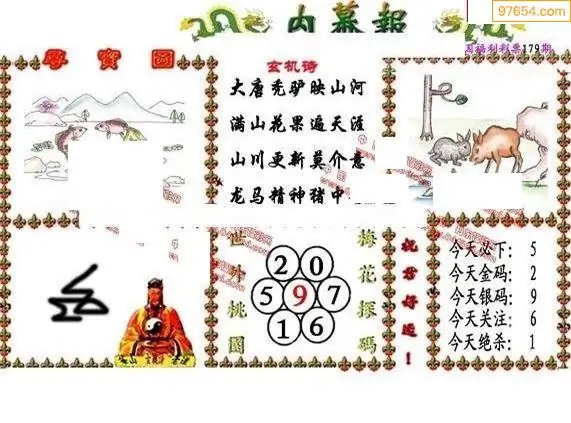 97654.com
寻宝图
国福利彩票179期
玄机诗
大唐秃驴映山河
满山花果遍天涯
山川更新莫介意
龙马精神猪中
世外桃園
2 0
5 9 7
1 6
梅花探碼
祝君好运！
今天必下：5
今天金码：2
今天银码：9
今天关注：6
今天绝杀：1